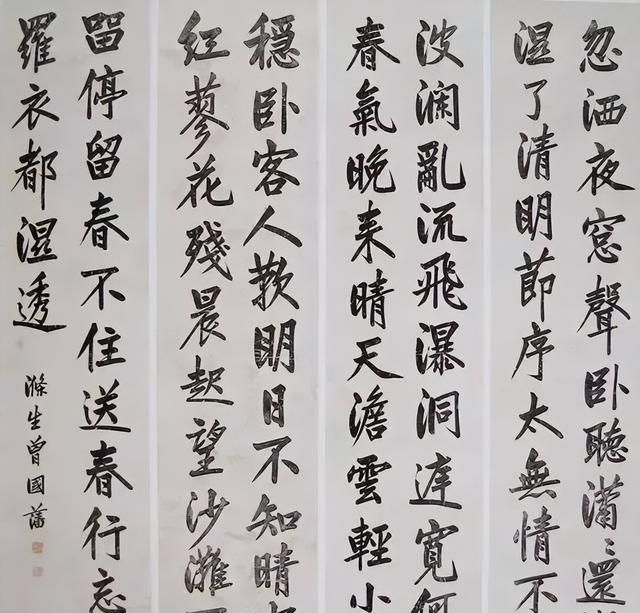 忽洒夜窓聲卧聽瀟〻還
湿了清明節序太無情不
波瀾亂流飛瀑洞庭寬何
春氣晚来晴天澹雲輕小
穩卧客人歡明日不知晴
紅蓼花殘晨起望沙灘
留停留春不住送春行忘
羅衣都湿透
滌生曾國藩